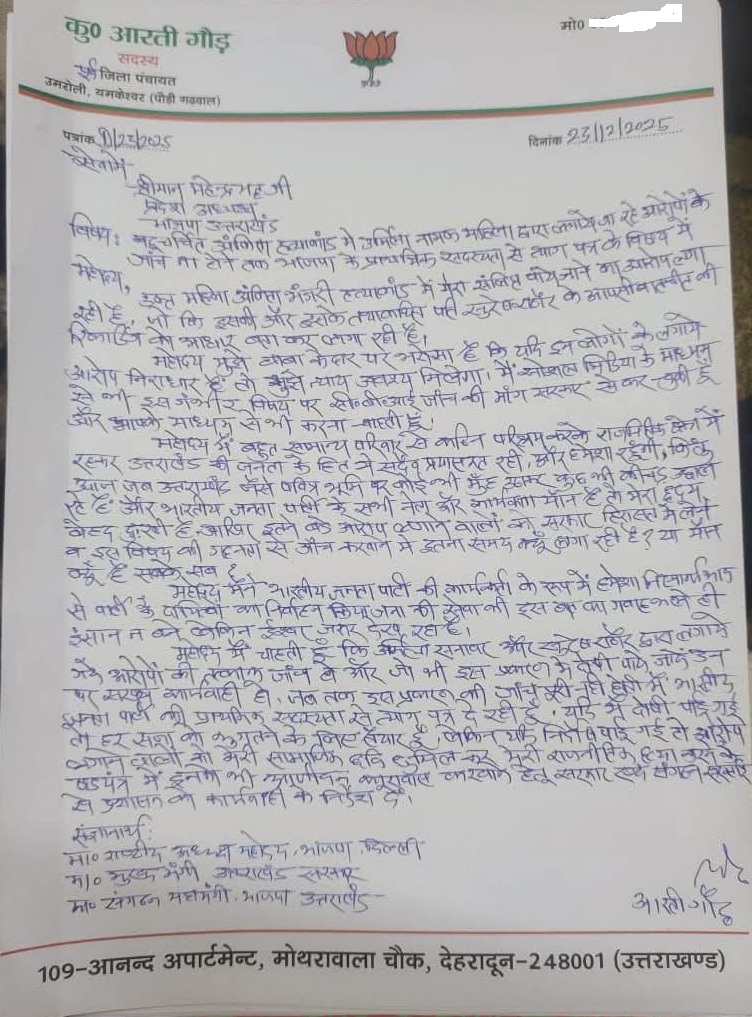 कु० आरती गौड़
सदस्य
पूर्व जिला पंचायत
उमरोली, यमकेश्वर (पौड़ी गढ़वाल)
मो०
पत्रांक D/23/2025
दिनांक 23/12/2025
सेवा में
श्रीमान महेन्द्र भट्ट जी
प्रदेश अध्यक्ष
भाजपा उत्तराखंड
विषय: बहुचर्चित अंकिता हत्याकांड मे उर्मिला नामक महिला द्वारा लगाये जा रहे आरोपों के
जाँच ना होने तक भाजपा के प्राथमिक सदस्यता से त्याग पत्र के विषय में
महोदय,
उक्त महिला अंकिता भंडारी हत्याकांड में मेरा संलिप्त पाये जाने का आरोप लगा
रही है, जो कि इसकी और इसके तथाकथित पति सुरेश राठौर के आपसी बातचीत की
रिकार्डिंग को आधार बना कर लगा रही है।
महोदय मुझे बाबा केदार पर भरोसा है कि यदि इन लोगों के लगाये
आरोप निराधार हैं तो मुझे न्याय अवश्य मिलेगा, मैं सोशल मिडिया के माध्यम
से भी इस गंभीर विषय पर सी०बी०आई जाँच की माँग सरकार से कर चुकी हूँ
और आपके माध्यम से भी करना चाहती हूँ।
महोदय में बहुत सामान्य परिवार से कठिन परिश्रम करके राजनितिक क्षेत्र में
रहकर उत्तराखंड की जनता के हित मे सदैव प्रयासरत रही, और हमेशा रहूँगी, किन्तु
आज जब उत्तराखंड जैसे पवित्र भूमि पर कोई भी मुँह उठाकर कुछ भी कीचड़ उछाल
रहे हैं और भारतीय जनता पार्टी के सभी नेता और कार्यकर्ता मौन हैं तो मेरा हृदय
बेहद दुःखी है, आखिर इतने बड़े आरोप लगाने वालों को सरकार हिरासत में लेने
व इस विषय की गहनता से जाँच करवाने मे इतना समय क्यूँ लगा रही है? या मौन
क्यूँ है सबके सब?
महोदय मैंने भारतीय जनता पार्टी की कार्यकर्ता के रूप में हमेशा निस्वार्थ भाव
से पार्टी के दायित्वों का निर्वाहन किया जनता की सेवा की इस बात का गवाह भले ही
इंसान न बने लेकिन ईश्वर जरूर देख रहा है।
महोदय मैं चाहती हूँ कि उर्मिला सनावर और सुरेश राठौर द्वारा लगाये
गये आरोपों की तत्काल जाँच हो और जो भी इस प्रकरण में दोषी पाये जायें उन
पर सख्त कार्यवाही हो, जब तक इस प्रकरण की जाँच पूरी नही होती में भारतीय
जनता पार्टी की प्राथमिक सदस्यता से त्याग पत्र दे रही हूँ, यदि में दोषी पाई गई
तो हर सजा को भुगतने के लिए तैयार हूँ, लेकिन यदि निर्दोष पाई गई तो आरोप
लगाने वालों को मेरी सामाजिक छवि धूमिल कर मेरी राजनीतिक हत्या करने के
षडयंत्र में इनको भी आजीवन कारावास करवाने हेतु सरकार एवं संगठन
से प्रशासन को कार्यवाही के निर्देश दें।
संज्ञानार्थ:
मा० राष्ट्रीय अध्यक्ष महोदय, भाजपा, दिल्ली
मा० मुख्य मंत्री उत्तराखंड सरकार
मा० संगठन महामंत्री, भाजपा उत्तराखंड
आरती गौड़
109-आनन्द अपार्टमेन्ट, मोथरावाला चौक, देहरादून-248001 (उत्तराखण्ड)